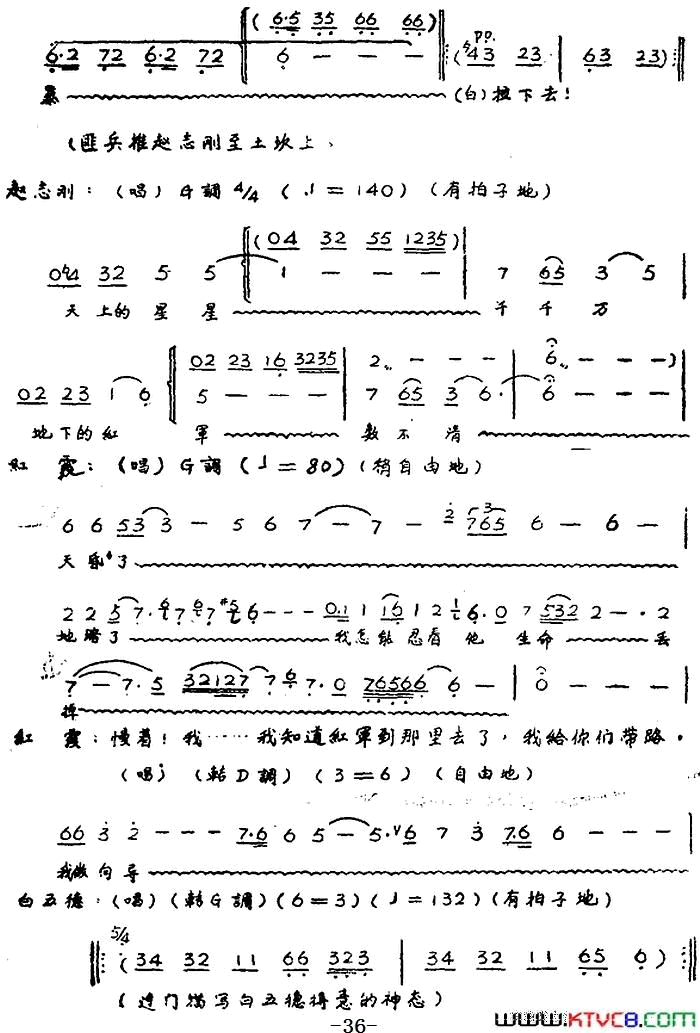 (6·5 35 66 66)
6·2 72 6·2 72 6 — — — (43 23 | 63 23)
pp.
暴 (白)拉下去!
(匪兵推赵志刚至土坎上、
赵志刚: (唱) G調 4/4 (♩=140) (有拍子地)
(04 32 55 1235)
04 32 5 5 1 — — — 7 65 3 5
天上的星星 千千万
02 23 16 3235 2 — — — 6 — — —)
02 23 1 6 5 — — — 7 65 3 6· 6 — — —
地下的紅軍 数不清
紅霞: (唱) G調 (♩=80) (稍自由地)
6 6 53 3 — 5 6 7 — 7 — 2 765 6 — 6 —
天昏了
2 2 5 7· 6 7 6 7 5 6 — — — 0·1 1 16 1 2 1 6·0 7 532 2 — · 2
地暗了 我怎能忍看他生命 丢
7 — 7·5 32127 7 6 7·0 76566 6 — 0 — — —
掉
紅霞:慢着!我……我知道紅軍到那里去了,我給你们带路。
(唱) (轉D調) (3=6) (自由地)
66 3 2 — — — 7·6 6 5 — 5· 6 7 3 76 6 — — —
我做向导
白五德:(唱) (轉G調) (6=3) (♩=132) (有拍子地)
5/4
(34 32 11 66 323 | 34 32 11 65 6)
(过门描写白五德得意的神态)
-36-
www.KTVC8.com